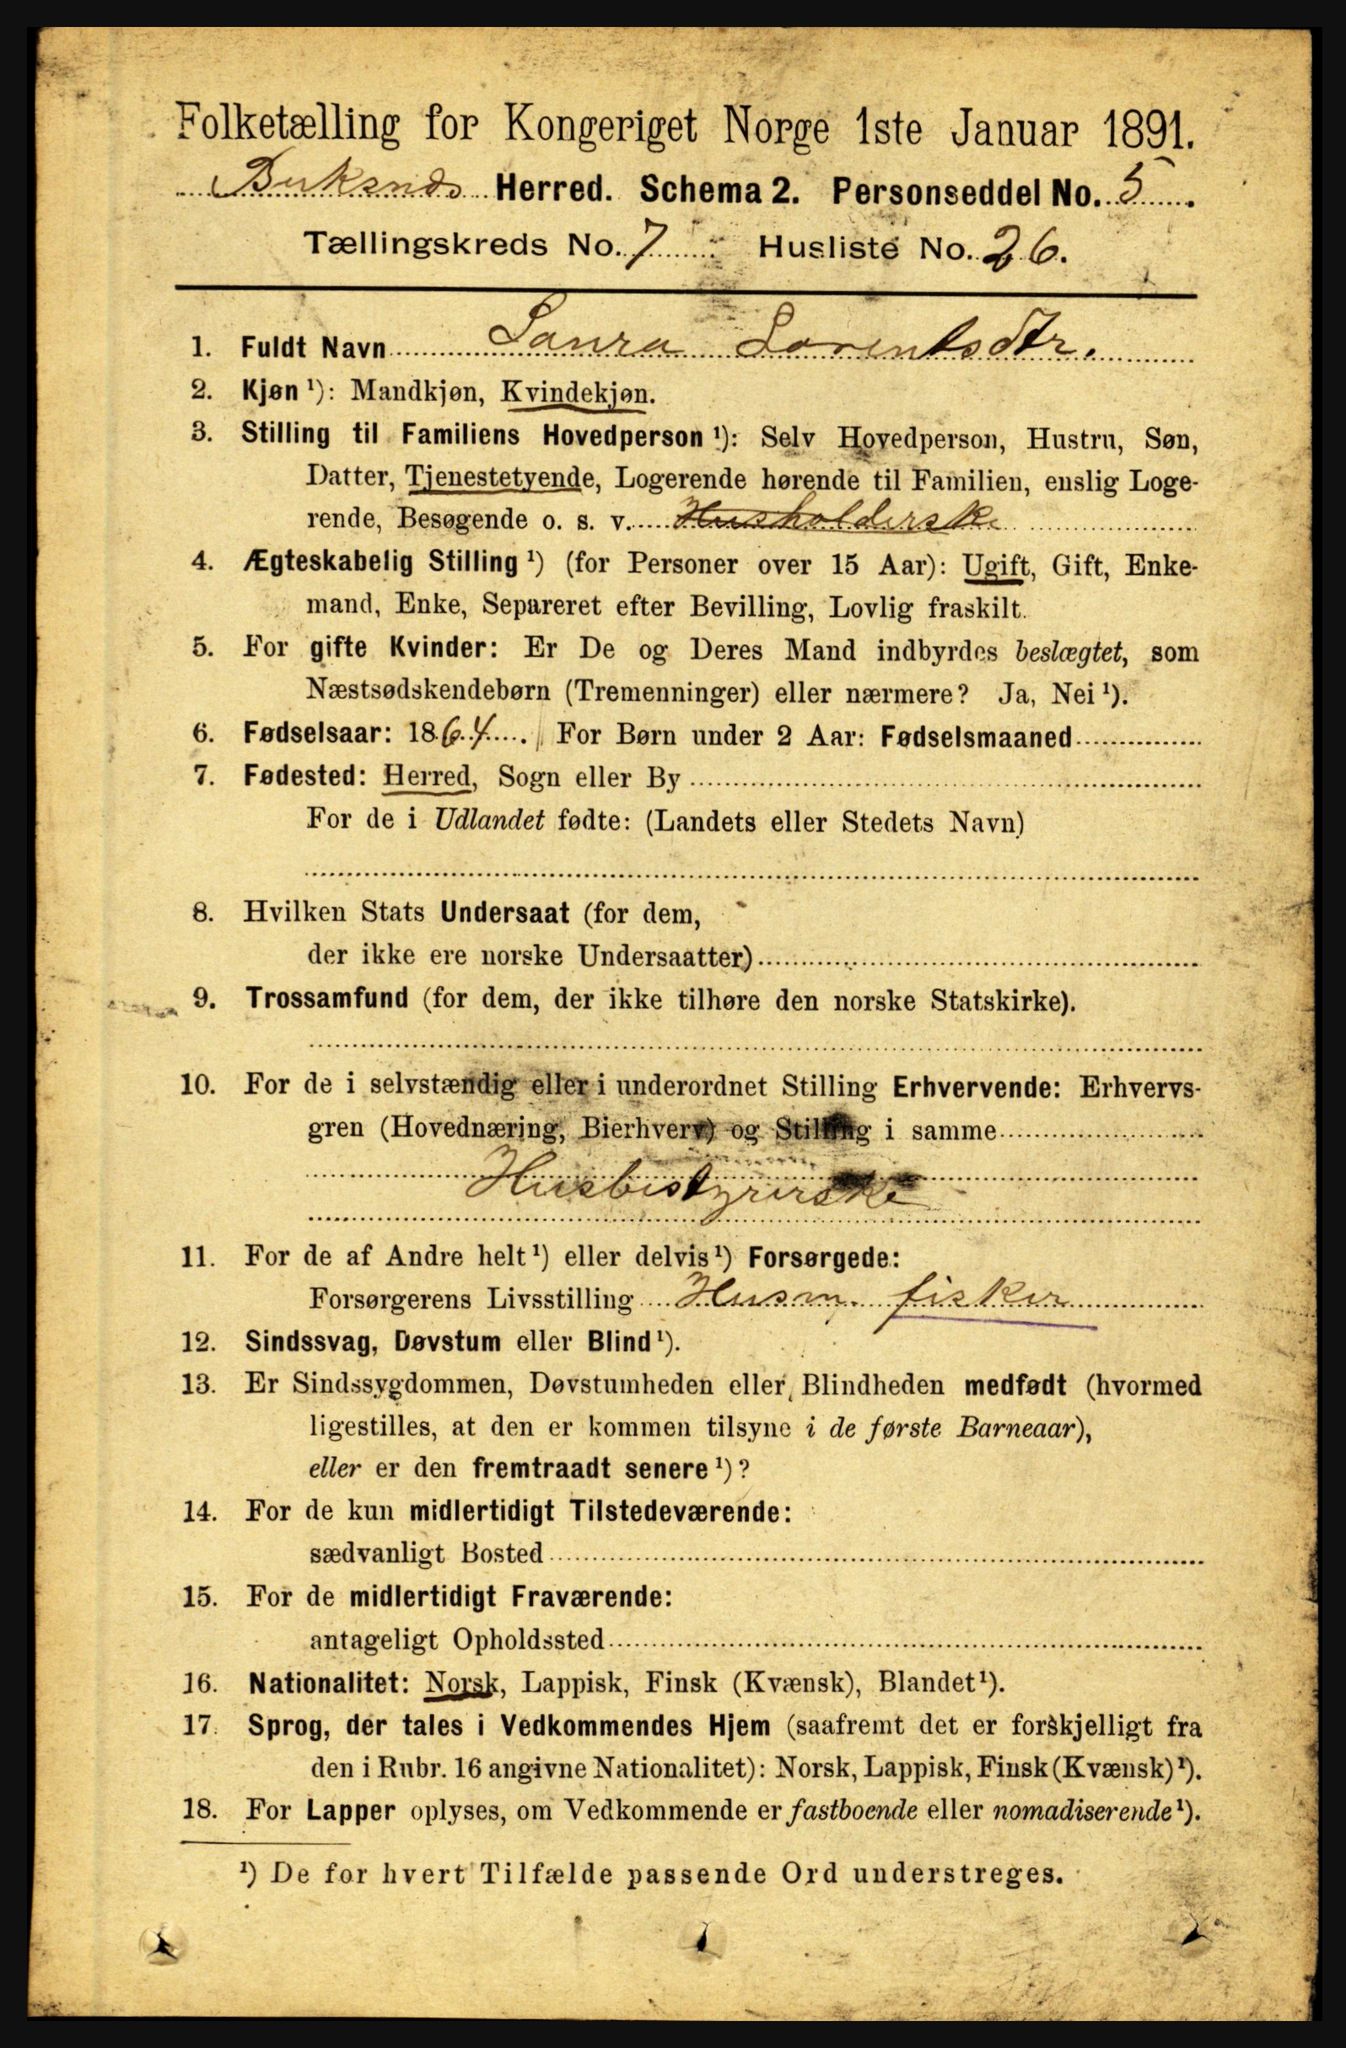 Folketælling for Kongeriget Norge 1ste Januar 1891.
Buksnæs Herred. Schema 2. Personseddel No. 5.
Tællingskreds No. 7 Husliste No. 26.
1. Fuldt Navn Laura Lorentsdtr.
2. Kjøn ¹): Mandkjøn, Kvindekjøn.
3. Stilling til Familiens Hovedperson ¹): Selv Hovedperson, Hustru, Søn,
Datter, Tjenestetyende, Logerende hørende til Familien, enslig Loge-
rende, Besøgende o. s. v. Husholderske
4. Ægteskabelig Stilling ¹) (for Personer over 15 Aar): Ugift, Gift, Enke-
mand, Enke, Separeret efter Bevilling, Lovlig fraskilt.
5. For gifte Kvinder: Er De og Deres Mand indbyrdes beslægtet, som
Næstsødskendebørn (Tremenninger) eller nærmere? Ja, Nei ¹).
6. Fødselsaar: 1864. For Børn under 2 Aar: Fødselsmaaned
7. Fødested: Herred, Sogn eller By
For de i Udlandet fødte: (Landets eller Stedets Navn)
8. Hvilken Stats Undersaat (for dem,
der ikke ere norske Undersaatter)
9. Trossamfund (for dem, der ikke tilhøre den norske Statskirke).
10. For de i selvstændig eller i underordnet Stilling Erhvervende: Erhvervs-
gren (Hovednæring, Bierhverv) og Stilling i samme
Husbistyrirske
11. For de af Andre helt ¹) eller delvis ¹) Forsørgede:
Forsørgerens Livsstilling Husm. fisker
12. Sindssvag, Døvstum eller Blind ¹).
13. Er Sindssygdommen, Døvstumheden eller Blindheden medfødt (hvormed
ligestilles, at den er kommen tilsyne i de første Barneaar),
eller er den fremtraadt senere ¹)?
14. For de kun midlertidigt Tilstedeværende:
sædvanligt Bosted
15. For de midlertidigt Fraværende:
antageligt Opholdssted
16. Nationalitet: Norsk, Lappisk, Finsk (Kvænsk), Blandet ¹).
17. Sprog, der tales i Vedkommendes Hjem (saafremt det er forskjelligt fra
den i Rubr. 16 angivne Nationalitet): Norsk, Lappisk, Finsk (Kvænsk) ¹).
18. For Lapper oplyses, om Vedkommende er fastboende eller nomadiserende ¹).
¹) De for hvert Tilfælde passende Ord understreges.